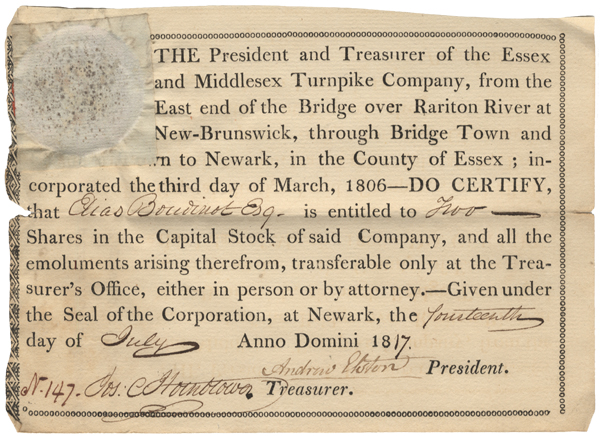 THE President and Treasurer of the Essex
and Middlesex Turnpike Company, from the
East end of the Bridge over Rariton River at
New-Brunswick, through Bridge Town and
to Newark, in the County of Essex ; in-
corporated the third day of March, 1806—DO CERTIFY,
that Elias Boudinot Esq. is entitled to Two
Shares in the Capital Stock of said Company, and all the
emoluments arising therefrom, transferable only at the Trea-
surer's Office, either in person or by attorney.—Given under
the Seal of the Corporation, at Newark, the fourteenth
day of July Anno Domini 1817.
Andrew President.
No. 147. Jos. C. Treasurer.